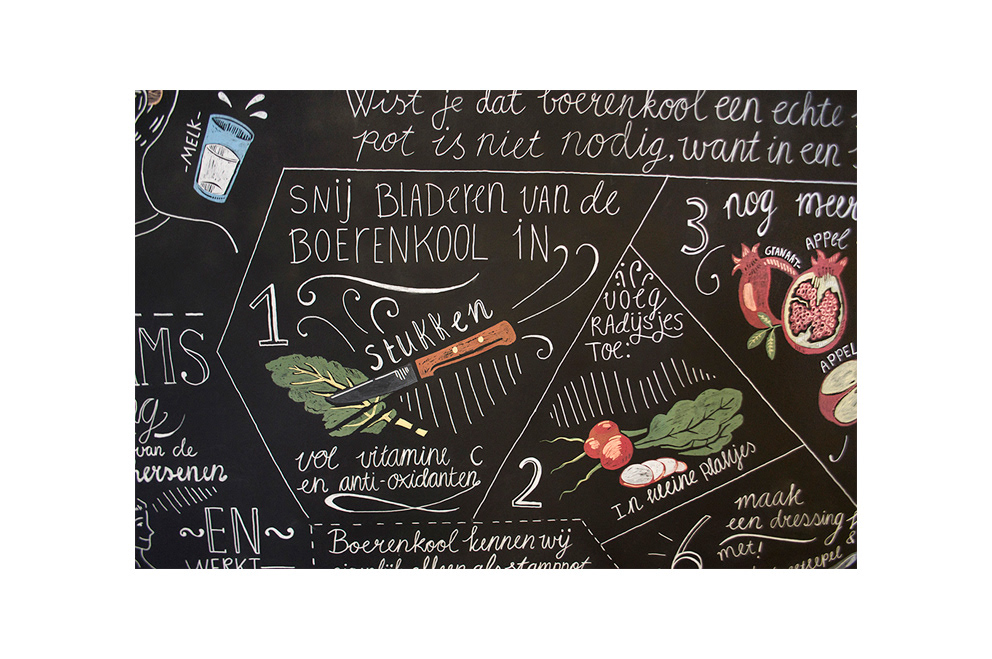 -MELK-
Wist je dat boerenkool een echte
pot is niet nodig, want in een
SNIJ BLADEREN VAN DE
BOERENKOOL IN
1
STUKKEN
vol vitamine C
en anti-oxidanten
2
voeg
RADIJSJES
TOE:
In kleine plakjes
3 nog meer
GRANAAT-
APPEL
APPEL
van de
hersenen
~EN~
WERKT
Boerenkool kennen wij
eigenlijk alleen als stamppot
6
maak
een dressing
met!
&